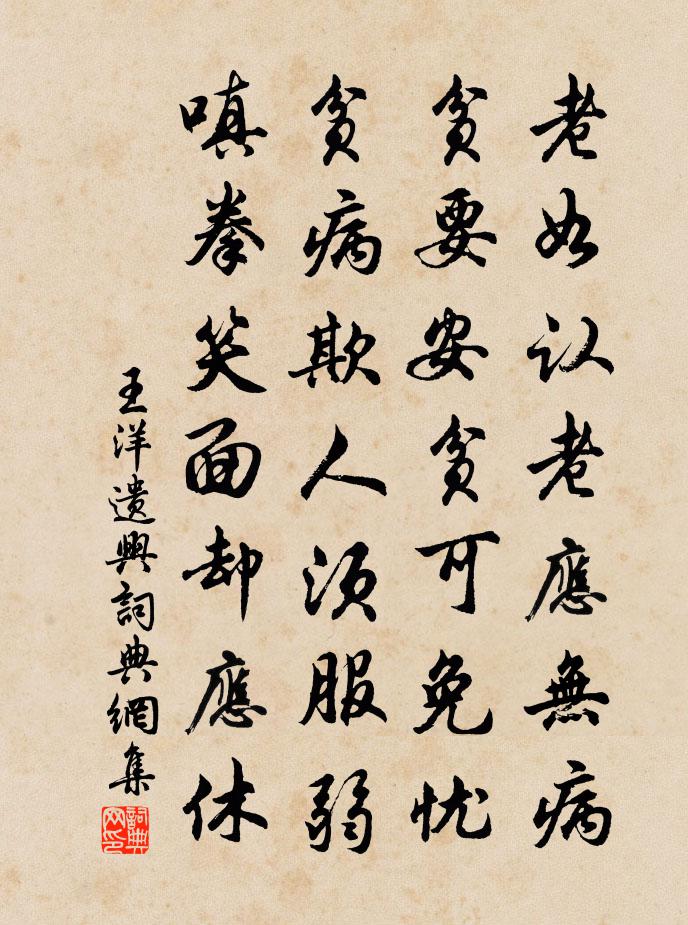 老如认老應無病
貧要安貧可免忧
貧病欺人須服弱
嗔拳笑面却應休
王洋遺興詞典網集
詞典网印